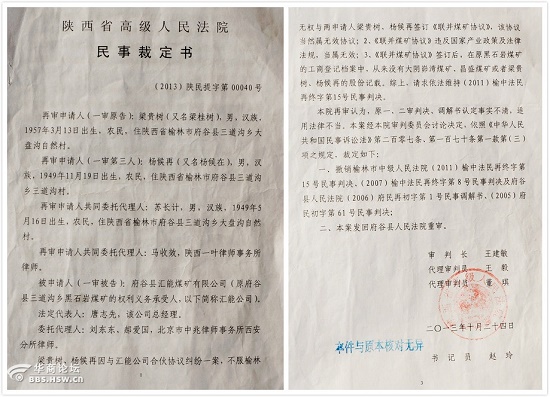 陕西省高级人民法院
民事裁定书
（2013）陕民提字第00040号
再审申请人（一审原告）：梁贵树（又名梁桂树），男，汉族，
1957年3月13日出生，农民，住陕西省榆林市府谷县三道沟乡大
盘沟自然村。
再审申请人（一审第三人）：杨候再（又名杨候在），男，汉
族，1949年11月19日出生，农民，住陕西省榆林市府谷县三道沟
乡三道沟村。
再审申请人共同委托代理人：苏长计，男，汉族，1949年5
月16日出生，农民，住陕西省榆林市府谷县三道沟乡大盘沟自然
村。
再审申请人共同委托代理人：马收效，陕西一叶律师事务所
律师。
被申请人（一审被告）：府谷县汇能煤矿有限公司（原府谷
县三道沟乡黑石岩煤矿的权利义务承受人，以下简称汇能公司）。
法定代表人：唐志先，该公司总经理。
委托代理人：刘东东，郝爱国，北京市中兆律师事务所西安
分所律师。
梁贵树、杨候再因与汇能公司合伙协议纠纷一案，不服榆林
华商论坛
BBS.HSW.CN
无权与两申请人梁贵树、杨候再签订《联并煤矿协议》，该协议
当然属无效协议；3、《联并煤矿协议》违反国家产业政策及法律
法规，当属无效；3、《联并煤矿协议》签订后，在原黑石岩煤矿
的工商登记档案中，从来没有大阴峁湾煤矿，昌盛煤矿或者梁贵
树、杨候再的股份记载。综上，请求依法维持（2011）榆中法民
再终字第15号民事判决。
本院再审认为，原一、二审判决、调解书认定事实不清，适
用法律不当。本案经本院审判委员会讨论决定，依照《中华人民
共和国民事诉讼法》第二百零七条、第一百七十条第一款第（三）
项之规定，裁定如下：
一、撤销榆林市中级人民法院（2011）榆中法民再终字第
15号民事判决、（2007）榆中法民再终字第8号民事判决及府谷
县人民法院（2006）府民再初字第1号民事调解书、（2005）府
民初字第61号民事判决；
二、本案发回府谷县人民法院重审。
审判长 王建敏
代理审判员 王毅
代理审判员 董琪
二〇一三年十月二十四日
本件与原本核对无异
书记员 赵玲